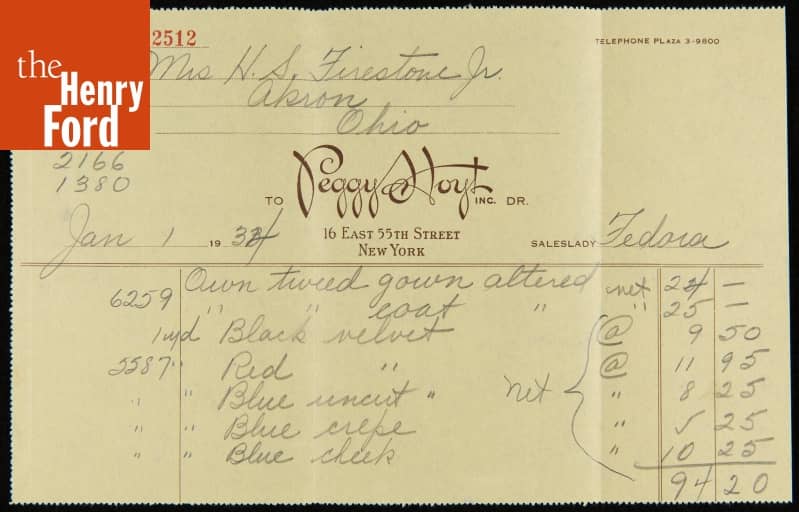 the Henry Ford
2512
TELEPHONE PLAZA 3-9800
Mrs H. S. Firestone Jr.
Akron
Ohio
2166
1380
TO Peggy Hoyt INC. DR.
16 EAST 55TH STREET
NEW YORK
Jan 1 1934
SALESLADY Fedora
6259 Own tweed gown altered net 24 —
" " coat " " 25 —
1 yd Black velvet @ 9 50
5587 " Red " @ 11 95
" " Blue uncut " net " 8 25
" " Blue crepe " 5 25
" " Blue check " 10 25
94 20